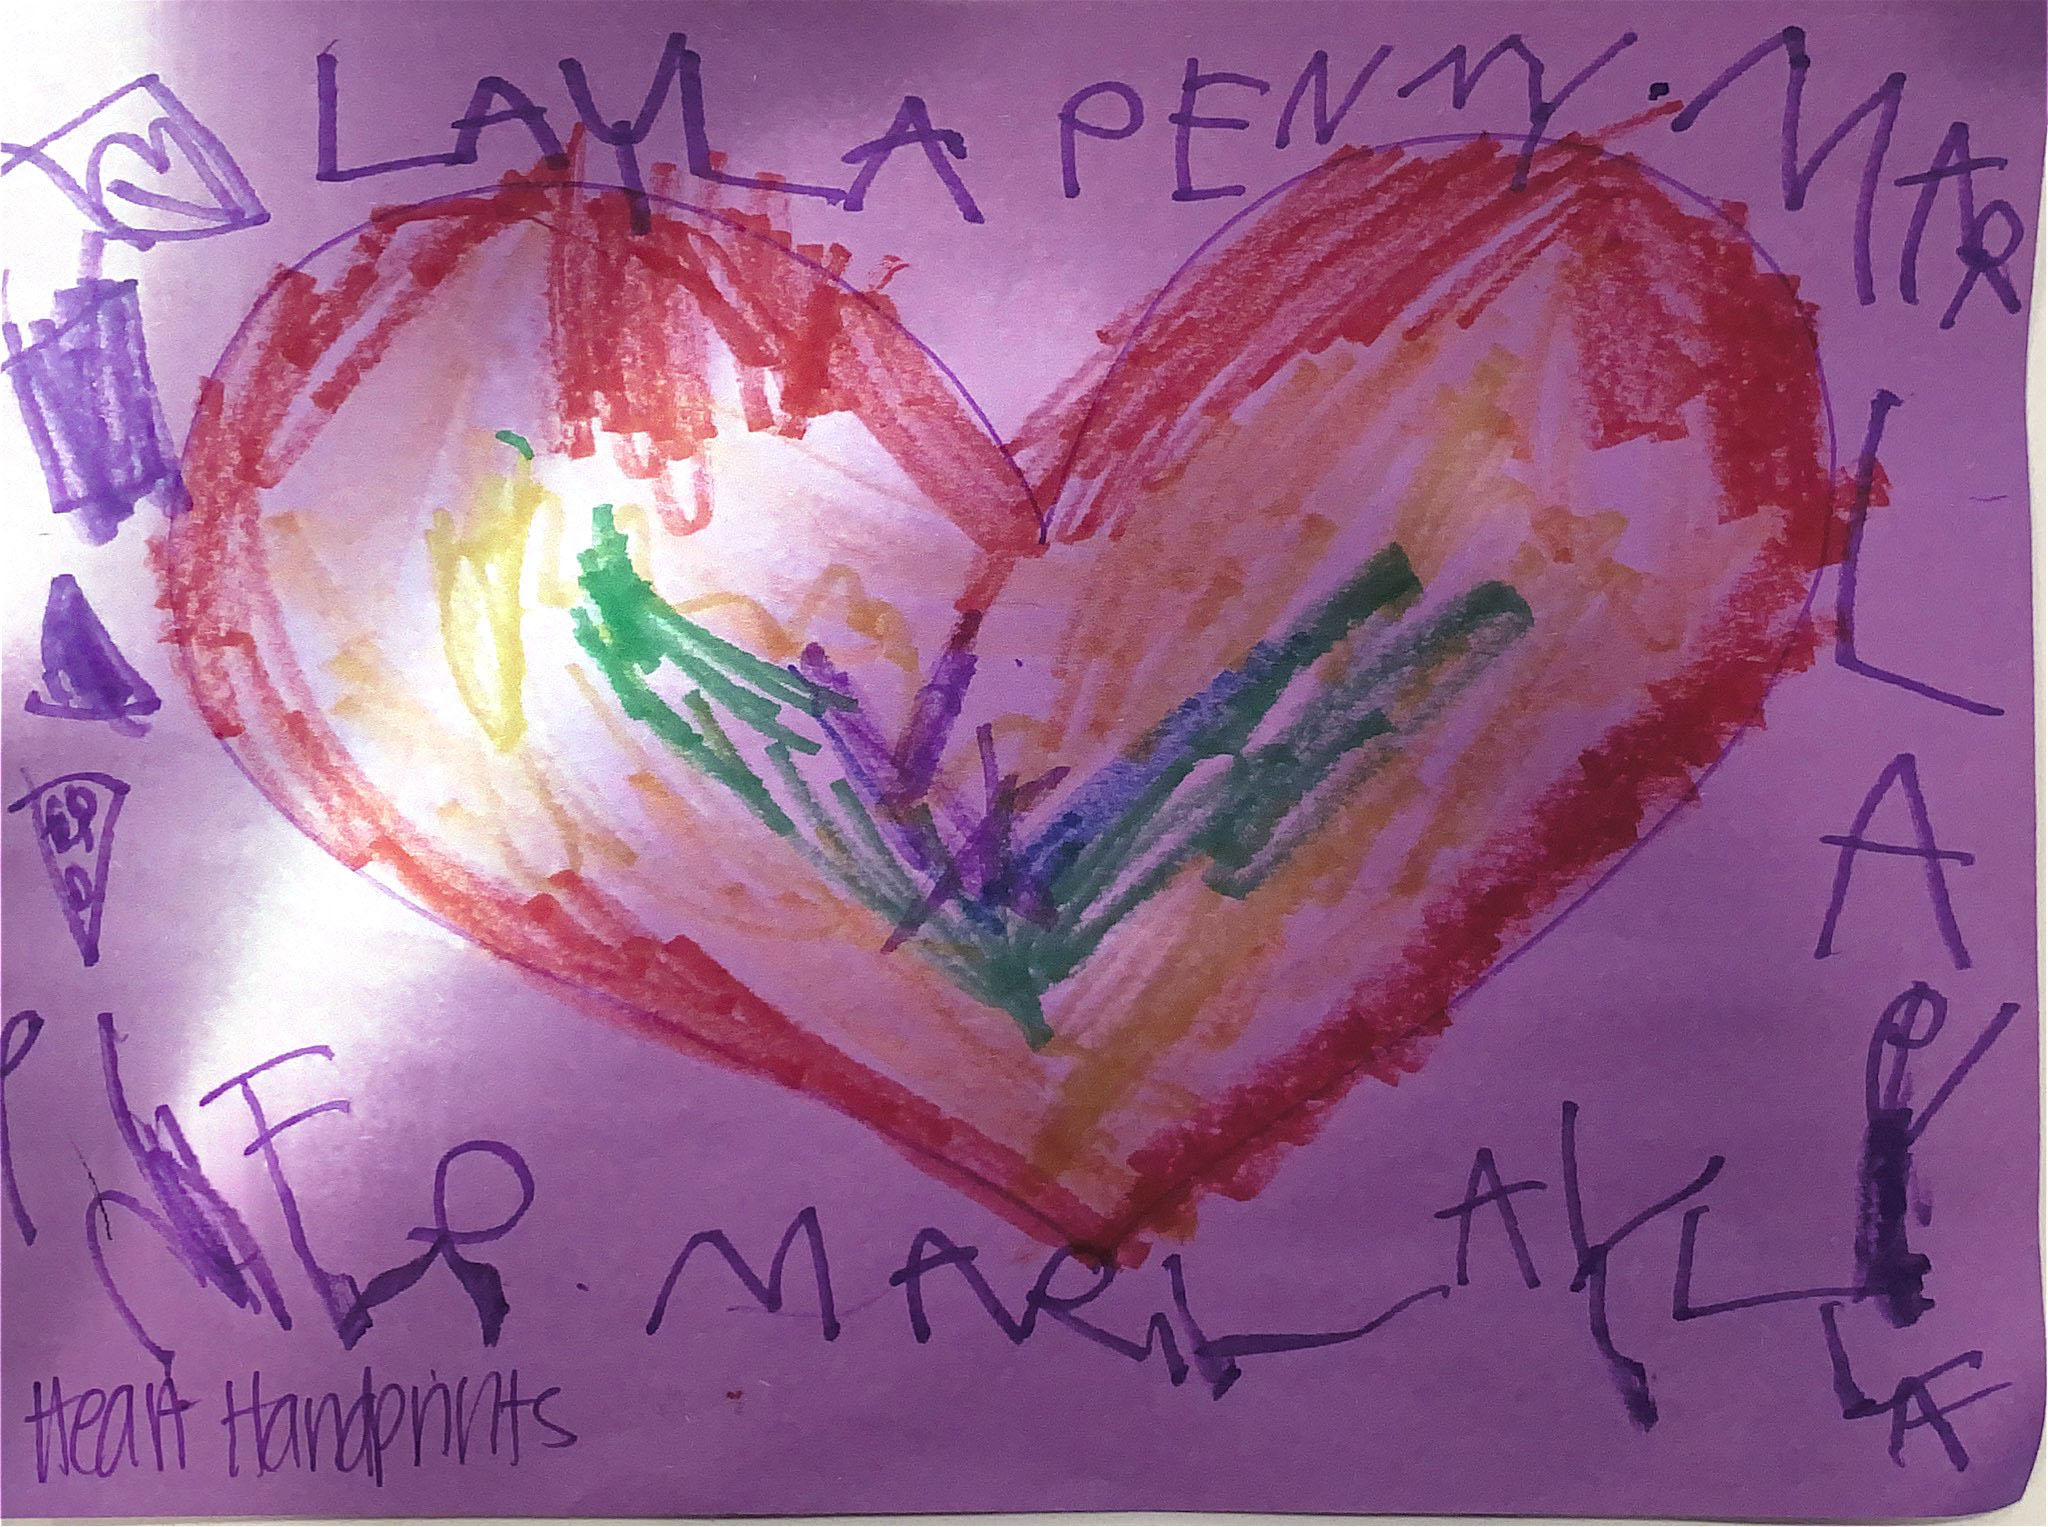 LAYLA PENNY. MAR
LA
MARL AYL
LA
Heart Handprints